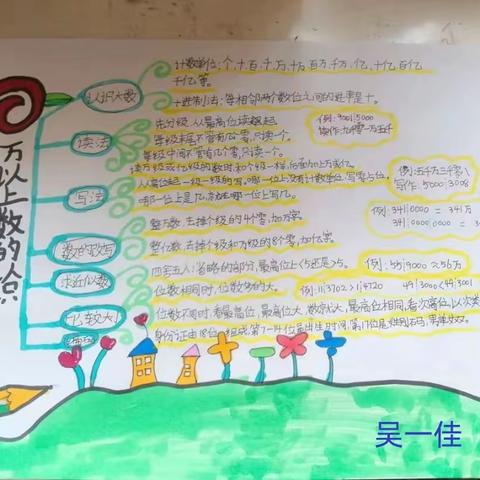 万以上数的认识
认识大数
计数单位:个,十,百,千,万,十万,百万,千万,亿,十亿,百亿
千亿等。
十进制计数法:每相邻两个数位之间的进率是十。
读法
先分级,从最高位读起
每级末尾不管有几个零,只读一个。
每级中间不管有几个零,只读一个。
读万级或亿级的数时,和个级一样,后面加上万或亿。
写法
从高位起一级一级的写。哪一位上没有计数单位,写零占位。
哪一位上是几,就在哪一位上写几。
例:五千万三千零八
写作:5000|3008
数的改写
整万数,去掉个级的4个零,加万字
整亿数,去掉个级和万级的8个零,加亿字。
例:341|0000 = 341万
求近似数
四舍五入:省略的部分,最高位上<5还是≥5。
例:55|9000≈56万
比较大小
位数相同时,位数多的大。
位数不同时,看最高位,最高位大,数就大,最高位相同,看次高位,以次类
身份证由18位组成,第7-14位是出生时间,第17位是性别
吴一佳